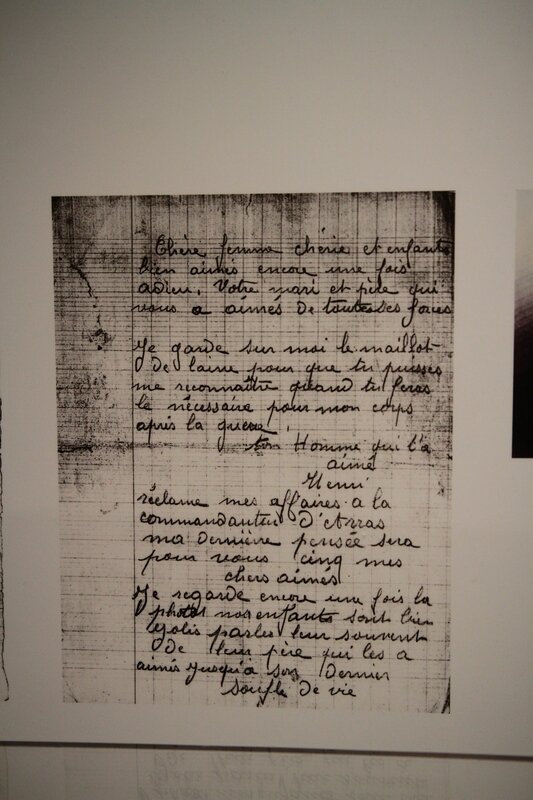 Chère femme chérie et enfants
bien aimés encore une fois
adieu. Votre mari et père qui
vous a aimés de toutes ses forces
Je garde sur moi le maillot
de laine pour que tu puisses
me reconnaître quand tu feras
le nécessaire pour mon corps
après la guerre.
ton Homme qui t'a
aimé
Henri
réclame mes affaires a la
commandantur D'Arras
ma dernière pensée sera
pour vous cinq mes
chers aimés
Je regarde encore une fois la
photo nos enfants sont bien
jolis parles leur souvent
de leur père qui les a
aimés jusqu'à son dernier
soufle de vie